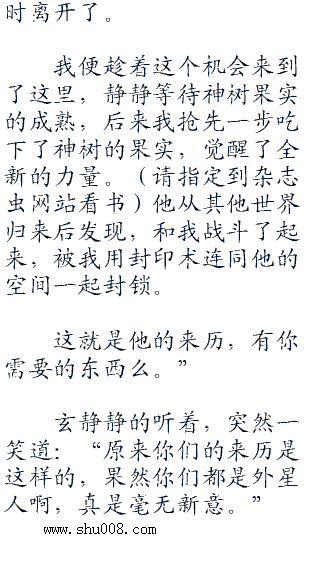 时离开了。
我便趁着这个机会来到
了这里，静静等待神树果实
的成熟，后来我抢先一步吃
下了神树的果实，觉醒了全
新的力量。（请指定到杂志
虫网站看书）他从其他世界
归来后发现，和我战斗了起
来，被我用封印术连同他的
空间一起封锁。
这就是他的来历，有你
需要的东西么。”
玄静静的听着，突然一
笑道：“原来你们的来历是
这样的，果然你们都是外星
人啊，真是毫无新意。”
www.shu008.com